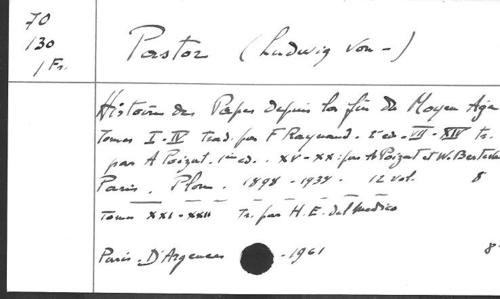 70
130
1 Fr.
Pastor (Ludwig von -)
Histoire des Papes depuis la fin du Moyen Age
Tomes I-IV trad. par F Raynaud. 2e ed. - VII - XIV tr.
par A Poizat. 1ère ed. - XV-XX: par A Poizat et W. Berteval
Paris. Plon. 1898-1938. 12 vol. 8
Tomes XXI-XXII Tr. par H.E. del Medico
Paris. D'Argences - 1961 8